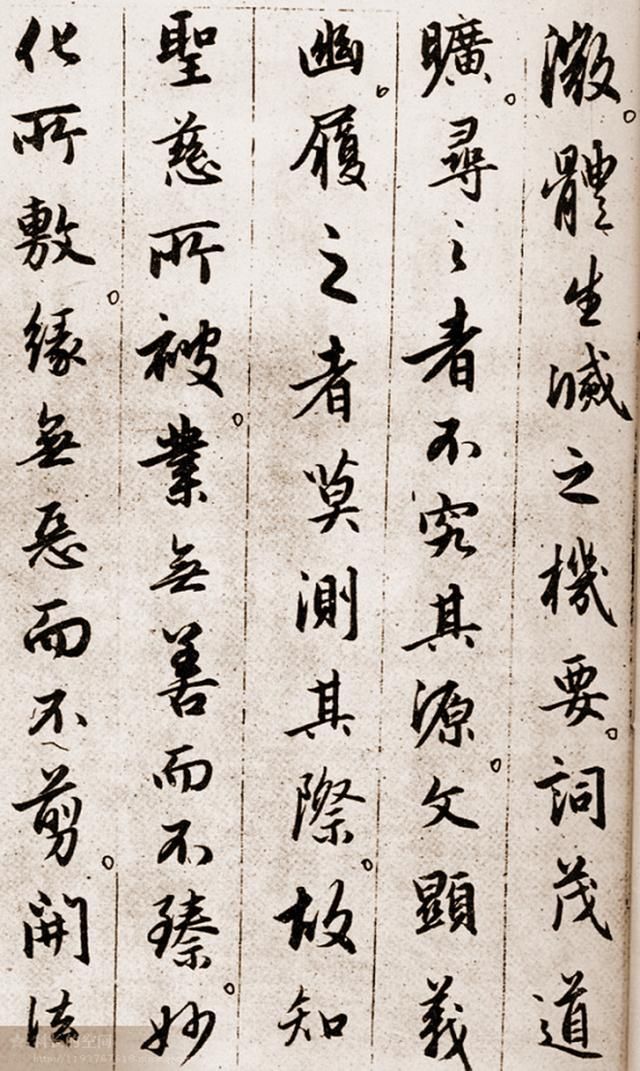 激。體生滅之機要。詞茂道
曠。尋之者不究其源。文顯義
幽。履之者莫測其際。故知
聖慈所被。業無善而不臻。妙
化所敷。緣無惡而不剪。開法